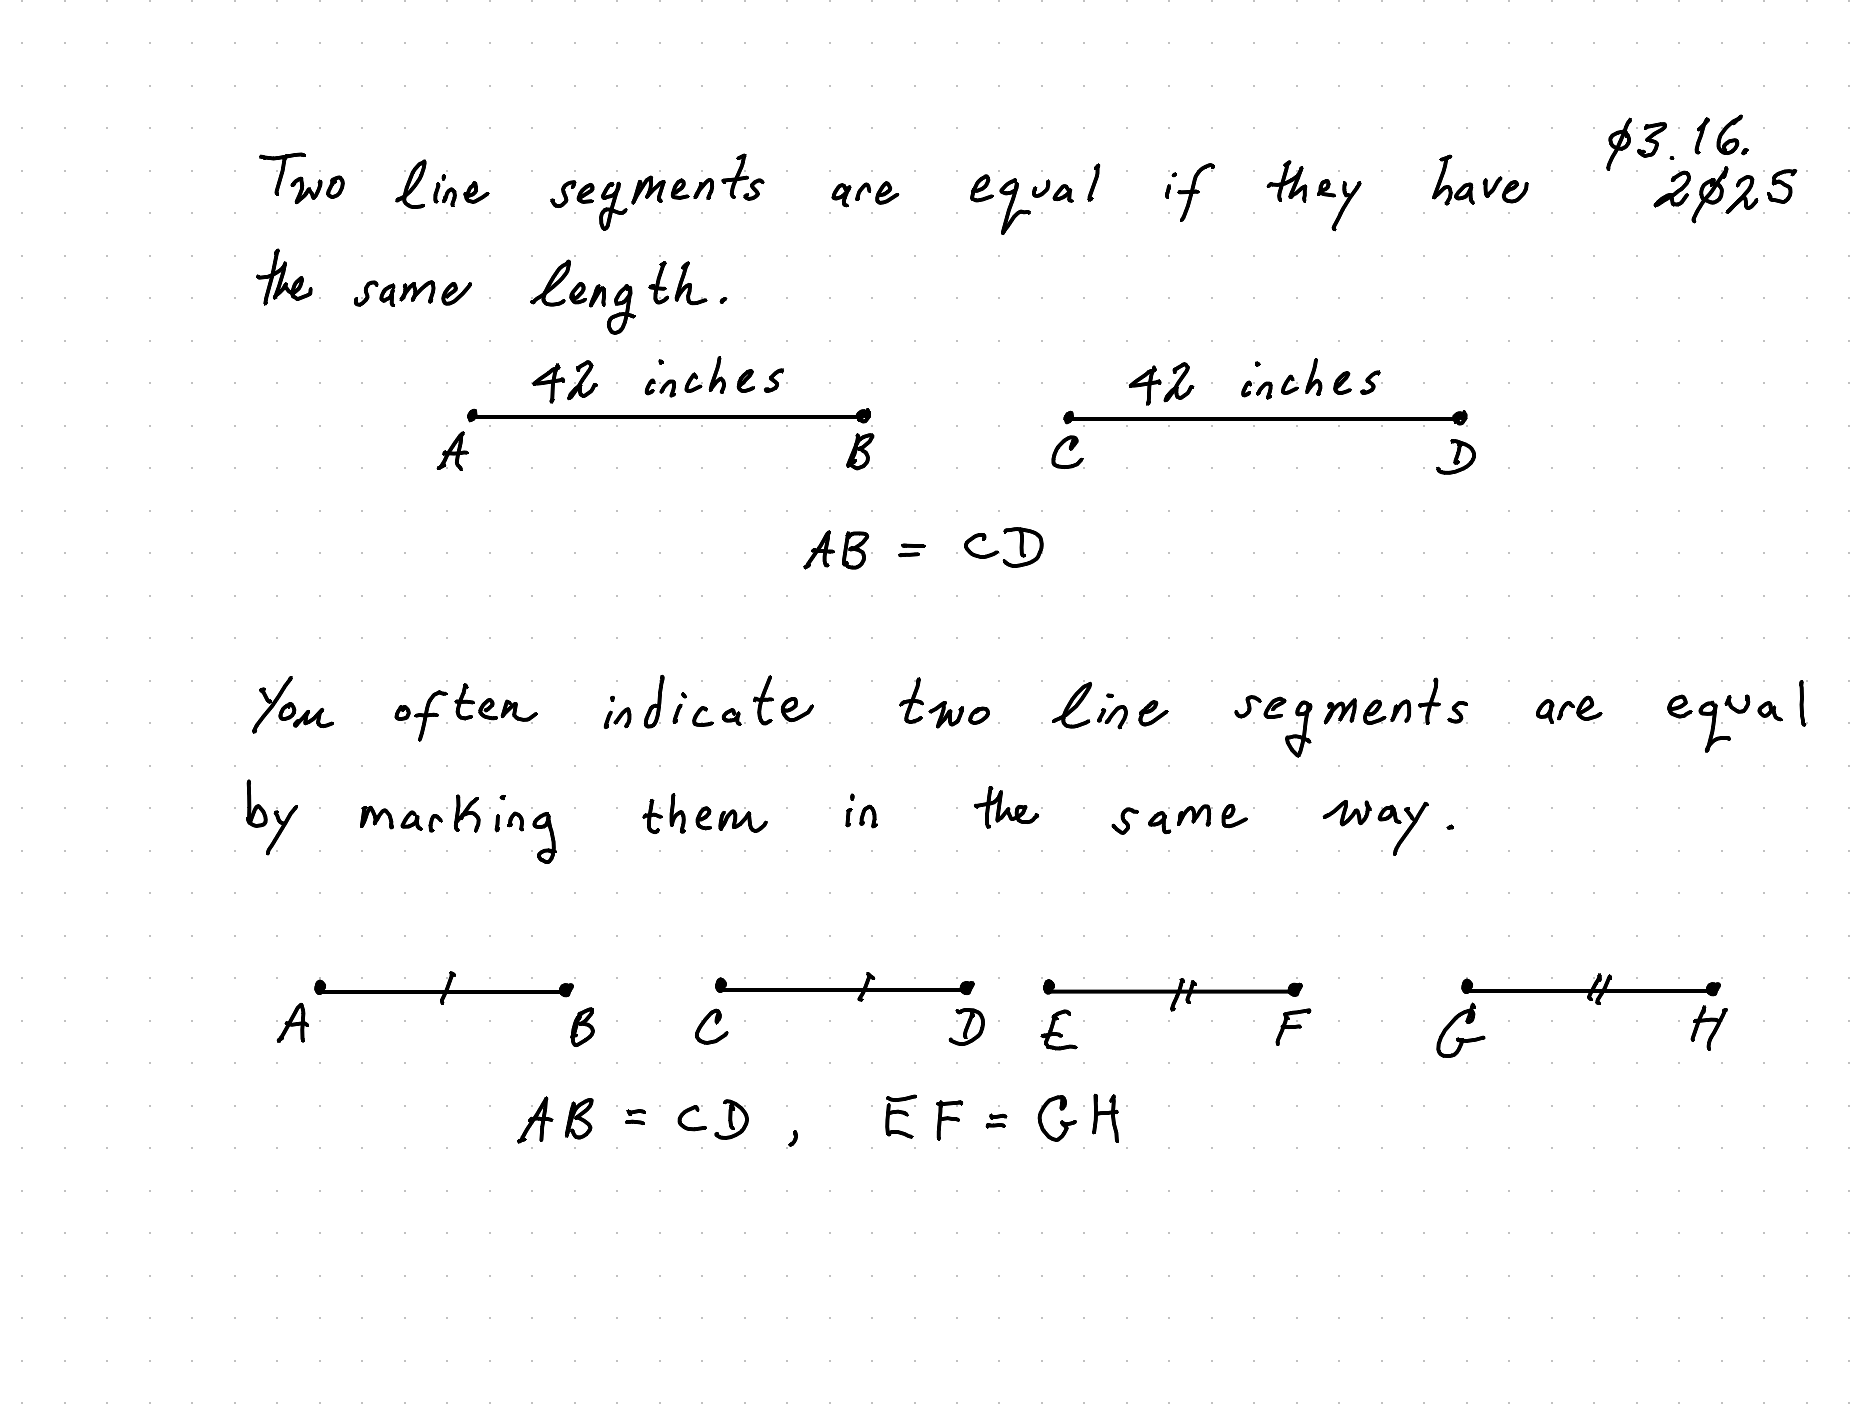 ø3.16.
2ø25
Two line segments are equal if they have
the same length.
42 inches 42 inches
A B C D
AB = CD
You often indicate two line segments are equal
by marking them in the same way.
A B C D E F G H
AB = CD, EF = GH